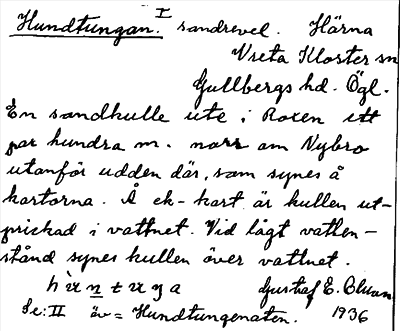 Hundtungan. I sandrevel. Härna
Vreta Kloster sn
Gullbergs hd. Ögl.
En sandkulle ute i Roxen ett
par hundra m. norr om Nybro
utanför udden där, som synes å
kartorna. Å ek-kart är kullen ut-
prickad i vattnet. Vid lågt vatten-
stånd synes kullen över vattnet.
Gustaf E. Olsson
Se: II äv = Hundtungenaten. 1936